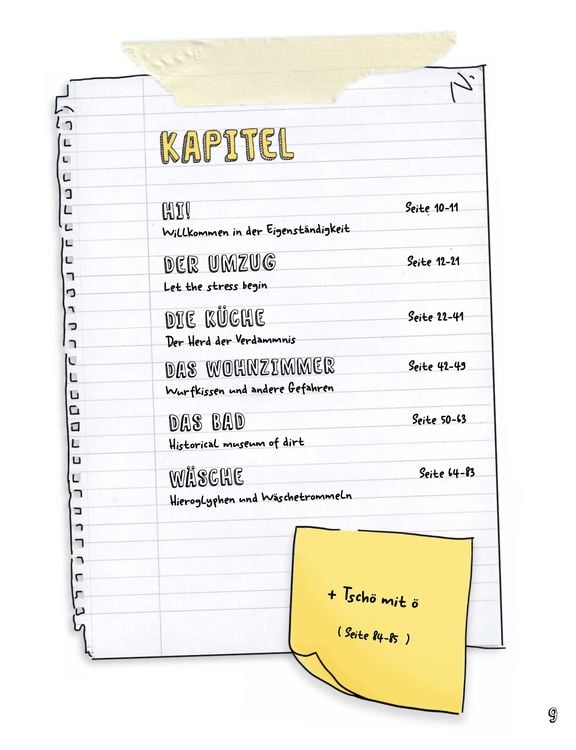 KAPITEL
HI! Seite 10-11
Willkommen in der Eigenständigkeit
DER UMZUG Seite 12-21
Let the stress begin
DIE KÜCHE Seite 22-41
Der Herd der Verdammnis
DAS WOHNZIMMER Seite 42-49
Wurfkissen und andere Gefahren
DAS BAD Seite 50-63
Historical museum of dirt
WÄSCHE Seite 64-83
Hieroglyphen und Wäschetrommeln
+ Tschö mit ö
(Seite 84-85)
9